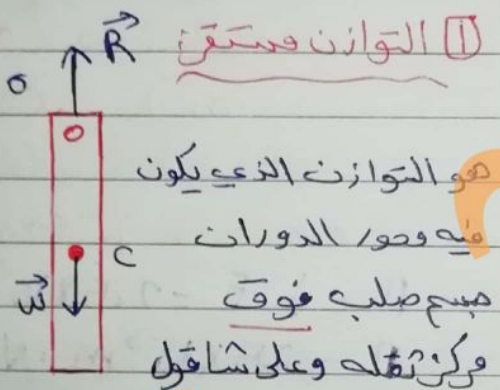 1 التوازن مستقر
R
o
هو التوازن الذي يكون
فيه محور الدوران
C
جسم صلب فوق
W
مركز ثقله وعلى شاقول